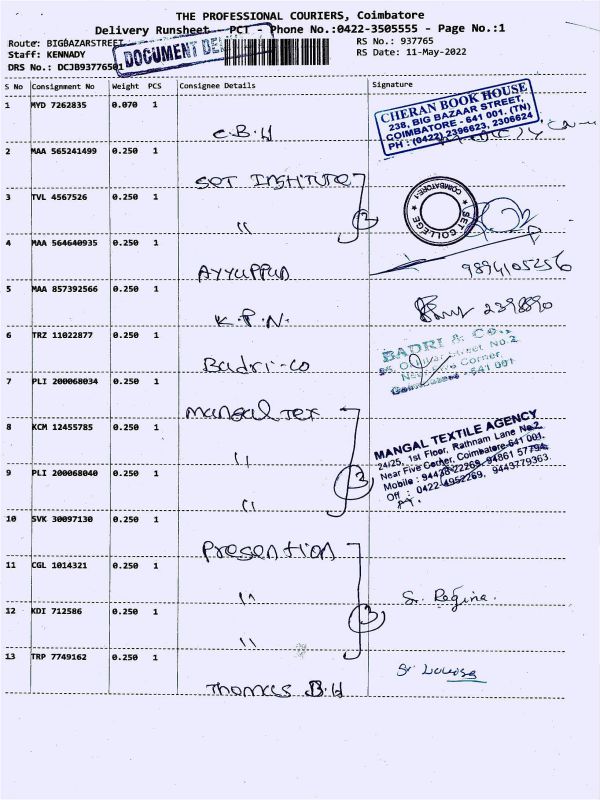 THE PROFESSIONAL COURIERS, Coimbatore
Delivery Runsheet - PCT - Phone No.:0422-3505555 - Page No.:1
Route: BIGBAZARSTREET RS No.: 937765
Staff: KENNADY RS Date: 11-May-2022
DRS No.: DCJB93776501
DOCUMENT DEL
S No Consignment No Weight PCS Consignee Details Signature
1 MYD 7262835 0.070 1
C.B.H
CHERAN BOOK HOUSE
238, BIG BAZAAR STREET,
COIMBATORE - 641 001. (TN)
PH : (0422) 2396623, 2306624
2 MAA 565241499 0.250 1
SET INSTITUTE
3 TVL 4567526 0.250 1
"
2
SET COLLEGE
COIMBATORE-1
4 MAA 564640935 0.250 1
Ayyuppun
9894105256
5 MAA 857392566 0.250 1
K.P.N.
2398890
6 TRZ 11022877 0.250 1
Badri-co
BADRI & CO.,
Street, No.2
Near Five Corner,
Coimbatore - 641 001
7 PLI 200068034 0.250 1
mangal tex
8 KCM 12455785 0.250 1
"
MANGAL TEXTILE AGENCY
24/25, 1st Floor, Rathnam Lane No.2,
Near Five Corner, Coimbatore-641 001.
Mobile : 94438 22269, 94861 57794
Off : 0422-4952269, 9443779363.
9 PLI 200068040 0.250 1
"
3
10 SVK 30097130 0.250 1
Presention
11 CGL 1014321 0.250 1
"
Sr. Regina.
12 KDI 712586 0.250 1
"
3
13 TRP 7749162 0.250 1
Thomas B.H
Sr